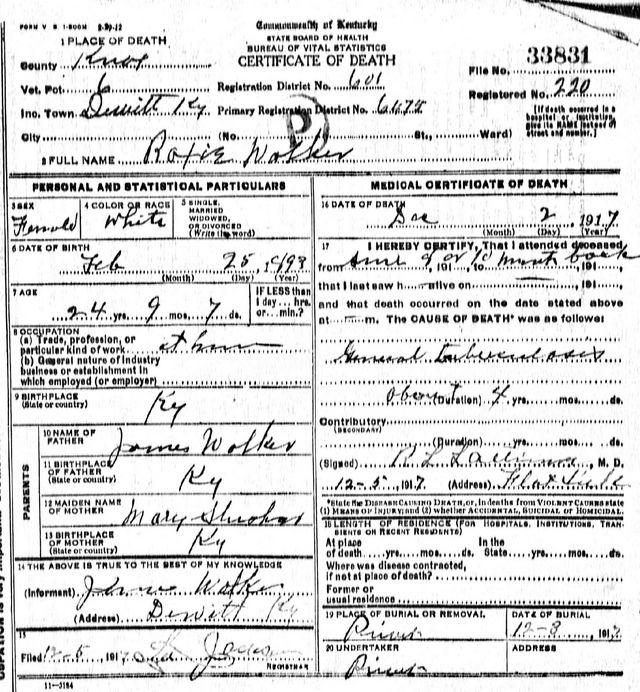 FORM V. S. 1-500M 8-30-12
Commonwealth of Kentucky
STATE BOARD OF HEALTH
BUREAU OF VITAL STATISTICS
CERTIFICATE OF DEATH
1 PLACE OF DEATH
County Knox
Vot. Pct 6
Inc. Town Dewitt Ky
City
Registration District No. 601
Primary Registration District No.
(No. St., Ward)
File No. 33831
Registered No. 220
[If death occurred in a hospital or institution, give its NAME instead of street and number.]
2 FULL NAME Roxie Walker
PERSONAL AND STATISTICAL PARTICULARS
3 SEX
Female
4 COLOR OR RACE
White
5 SINGLE, MARRIED WIDOWED, OR DIVORCED (Write the word)
6 DATE OF BIRTH
Feb 25, 1893
(Month) (Day) (Year)
7 AGE
24 yrs. 9 mos. 7 ds.
IF LESS than 1 day... hrs. or... min.?
8 OCCUPATION
(a) Trade, profession, or particular kind of work at home
(b) General nature of industry business or establishment in which employed (or employer)
9 BIRTHPLACE
(State or country) Ky
PARENTS
10 NAME OF FATHER James Walker
11 BIRTHPLACE OF FATHER
(State or country) Ky
12 MAIDEN NAME OF MOTHER Mary
13 BIRTHPLACE OF MOTHER
(State or country) Ky
14 THE ABOVE IS TRUE TO THE BEST OF MY KNOWLEDGE
(Informant) Walker
(Address) Dewitt Ky
15
Filed 12-5, 1917
REGISTRAR
11-3184
MEDICAL CERTIFICATE OF DEATH
16 DATE OF DEATH
Dec 2, 1917
(Month) (Day) (Year)
17 I HEREBY CERTIFY, That I attended deceased
from some 9 or 10 month back, 191, to 191,
that I last saw h alive on, 191,
and that death occurred on the date stated above
at m. The CAUSE OF DEATH* was as follows:
General tuberculosis
about (Duration) 4 yrs. mos. ds.
Contributory
(SECONDARY)
(Duration) yrs. mos. ds.
(Signed) M. D.
12-5, 1917 (Address) Flat Lick
*State the DISEASE CAUSING DEATH, or, in deaths from VIOLENT CAUSES state (1) MEANS OF INJURY; and (2) whether ACCIDENTAL, SUICIDAL or HOMICIDAL.
18 LENGTH OF RESIDENCE (FOR HOSPITALS, INSTITUTIONS, TRANSIENTS OR RECENT RESIDENTS)
At place of death yrs. mos. ds. In the State yrs. mos. ds.
Where was disease contracted, if not at place of death?
Former or usual residence
19 PLACE OF BURIAL OR REMOVAL
DATE OF BURIAL
12-3, 1917
20 UNDERTAKER
ADDRESS